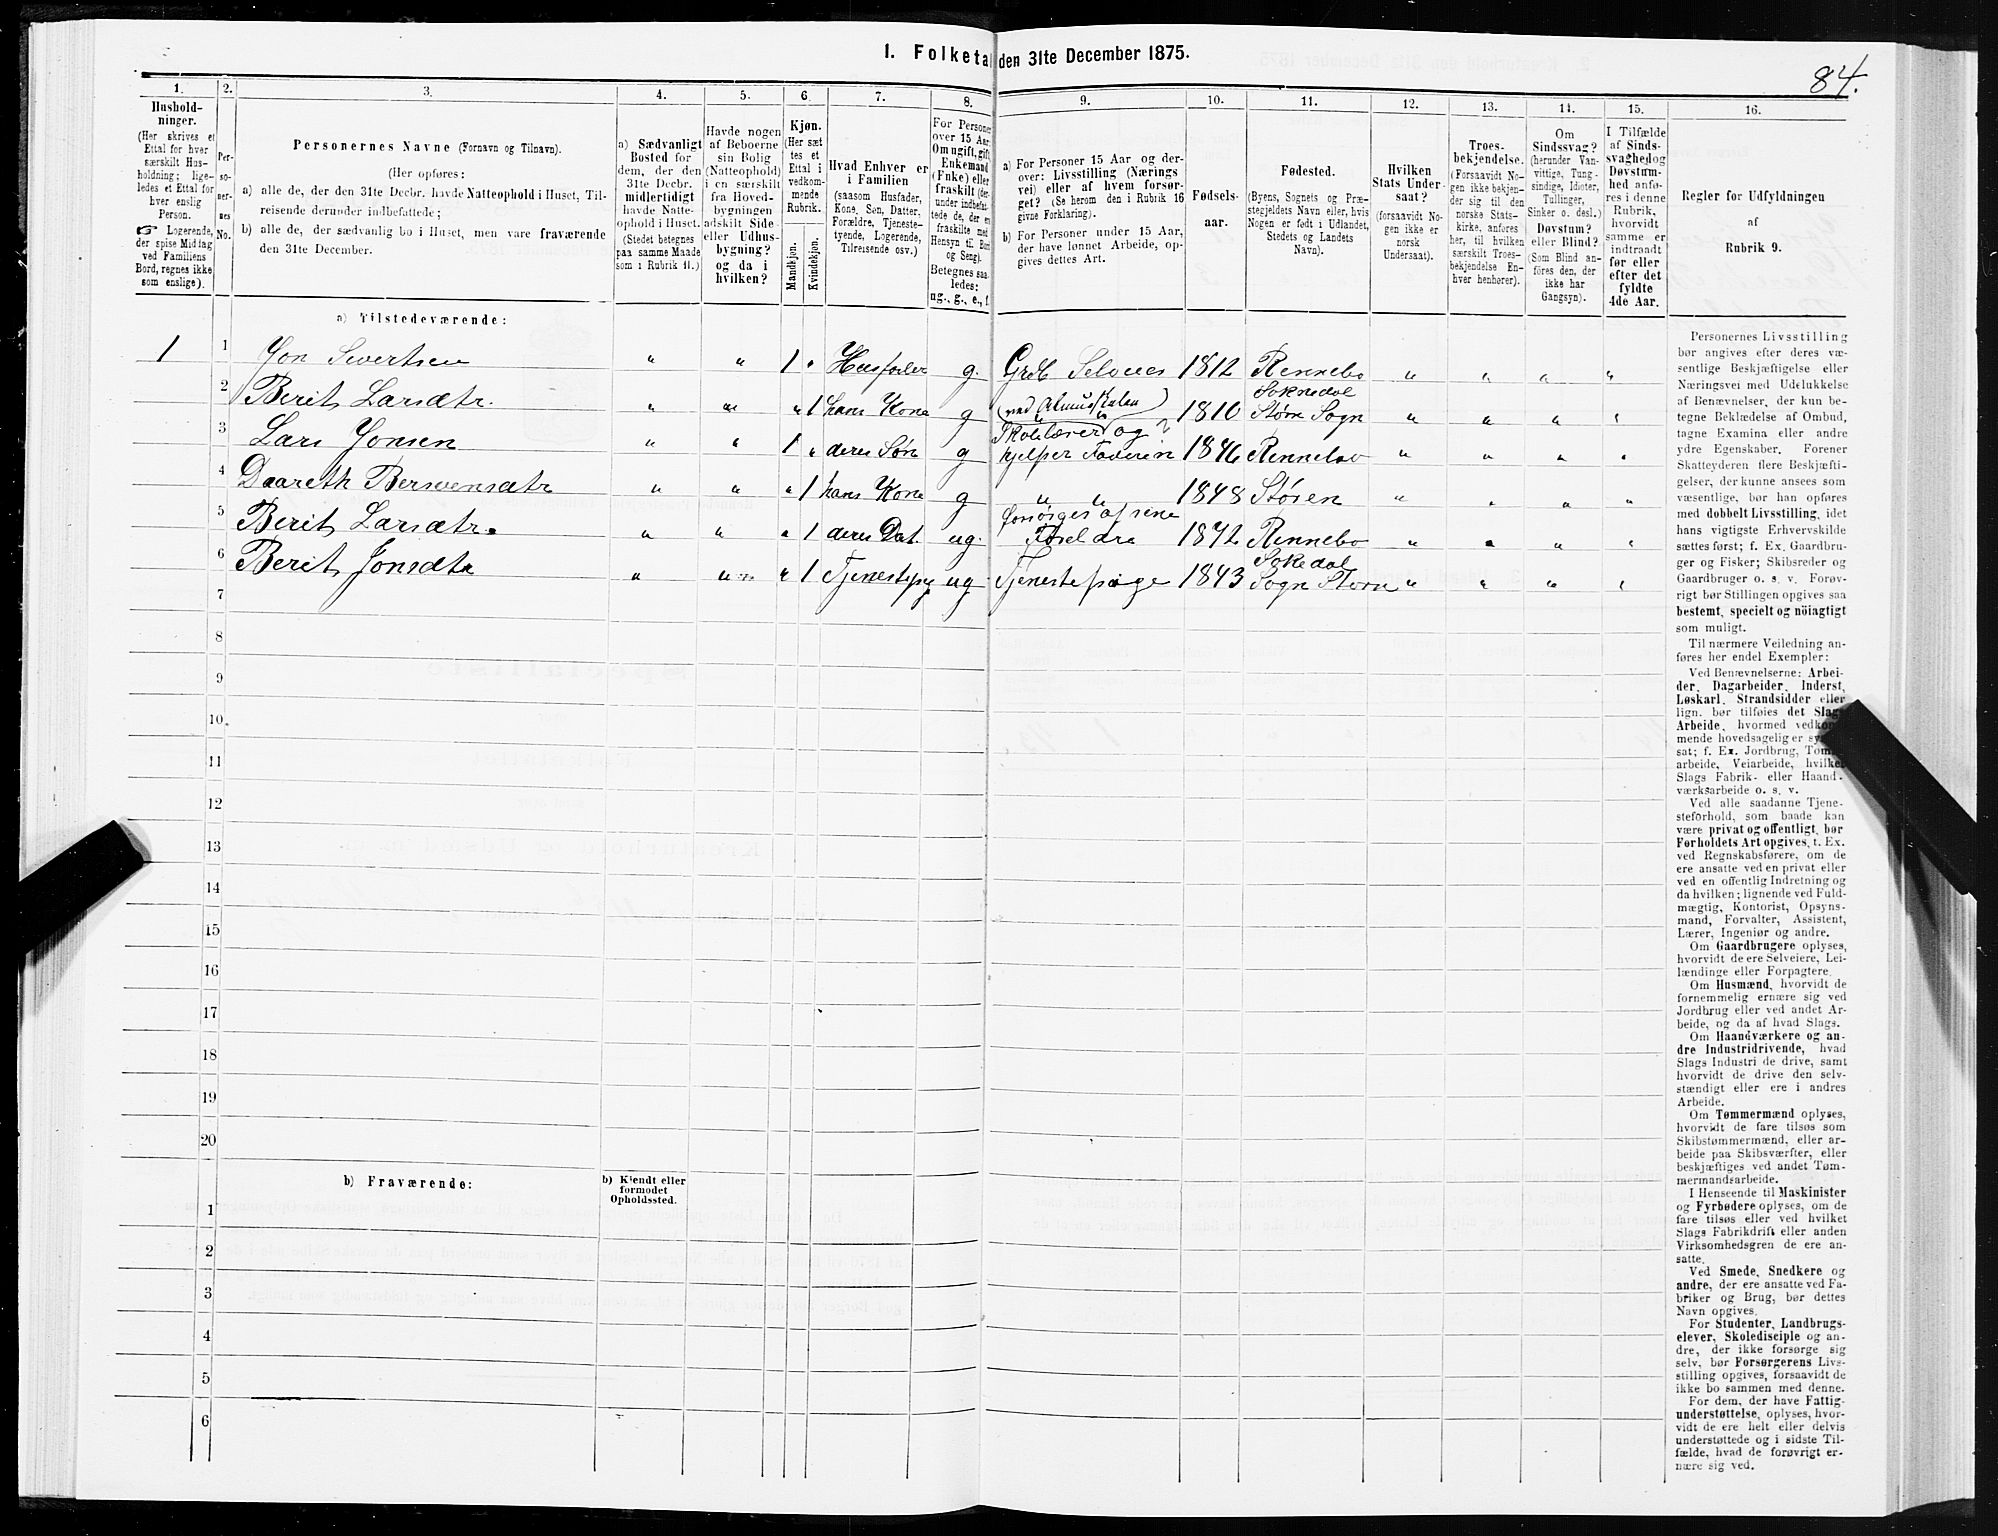 1. Folketal den 31te December 1875.
84.
1.
2.
3.
4.
5.
6.
7.
8.
9.
10.
11.
12.
13.
14.
15.
16.
Hushold-
ninger.
(Her skrives et
Ettal for hver
særskilt Hus-
holdning; lige-
ledes et Ettal for
hver enslig
Person.
☞ Logerende,
der spise Middag
ved Familiens
Bord, regnes ikke
som enslige).
Per-
so-
ner-
nes
No.
Personernes Navne (Fornavn og Tilnavn).
(Her opføres:
a) alle de, der den 31te Decbr. havde Natteophold i Huset, Til-
reisende derunder indbefattede;
b) alle de, der sædvanlig bo i Huset, men vare fraværende
den 31te December.
a) Sædvanligt
Bosted for
dem, der den
31te Decbr.
midlertidigt
havde Natte-
ophold i Huset.
(Stedet betegnes
paa samme Maade
som i Rubrik 11.)
Havde nogen
af Beboerne
sin Bolig
(Natteophold)
i en særskilt
fra Hoved-
bygningen
adskilt Side-
eller Udhus-
bygning?
og da i
hvilken?
Kjøn.
(Her sæt
tes et
Ettal i
vedkom-
mende
Rubrik.
Mandkjøn.
Kvindekjøn.
Hvad Enhver er
i Familien
(saasom Husfader,
Kone, Søn, Datter,
Forældre, Tjeneste-
tyende, Logerende,
Tilreisende osv.)
For Personer
over 15 Aar:
Om ugift, gift,
Enkemand
(Enke) eller
fraskilt (der-
under indbefat-
tede de, der er
fraskilte med
Hensyn til Bord
og Seng).
Betegnes saa-
ledes:
ug., g., e., f.
a) For Personer 15 Aar og der-
over: Livsstilling (Nærings
vei) eller af hvem forsør-
get? (Se herom den i Rubrik 16
givne Forklaring).
b) For Personer under 15 Aar,
der have lønnet Arbeide, op-
gives dettes Art.
Fødsels-
aar.
Fødested.
(Byens, Sognets og Præ-
stegjeldets Navn eller, hvis
Nogen er født i Udlandet,
Stedets og Landets
Navn).
Hvilken
Stats Under-
saat?
(forsaavidt No-
gen ikke er
norsk
Undersaat).
Troes-
bekjendelse.
(Forsaavidt No-
gen ikke bekjen-
der sig til den
norske Stats-
kirke, anføres
her, til hvilken
særskilt Troes-
bekjendelse En-
hver henhører).
Om
Sindssvag?
(herunder Van-
vittige, Tung-
sindige, Idioter,
Tullinger,
Sinker o. desl.)
Døvstum?
eller Blind?
(Som Blind an-
føres den, der
ikke har
Gangsyn).
I Tilfælde
af Sinds-
svaghed og
Døvstum-
hed anfø-
res i denne
Rubrik,
hvorvidt
samme er
indtraadt
før eller
efter det
fyldte
4de Aar.
Regler for Udfyldningen
af
Rubrik 9.
a) Tilstedeværende:
1 1 Jon Sivertsen " " 1 " Husfader g. Grdb Selveier 1812 Rennebo " " " "
2 Berit Larsdtr. " " " 1 hans Kone g " " 1810 Soknedal Støre Sogn " " " "
(ved Almuskolen)
3 Lars Jonsen " " 1 " deres Søn g Skolelærer og hjelper Faderen 1846 Rennebo " " " "
4 Daareth Bersvensdtr " " " 1 hans Kone g " " 1848 Støren " " " "
5 Berit Larsdtr. " " " 1 deres Dat. ug. forsørges af sine Foreldre 1872 Rennebo " " " "
6 Berit Jonsdtr " " " 1 Tjenestepg ug Tjenestepige 1843 Sokedal Sogn Støren " " " "
7
8
9
10
11
12
13
14
15
16
17
18
19
20
b) Fraværende:
b) Kjendt eller
formodet
Opholdssted.
1
2
3
4
5
6
Personernes Livsstilling
bør angives efter deres væ-
sentlige Beskjæftigelse eller
Næringsvei med Udelukkelse
af Benævnelser, der kun be-
tegne Beklædelse af Ombud,
tagne Examina eller andre
ydre Egenskaber. Forener
Skatteyderen flere Beskjæfti-
gelser, der kunne ansees som
væsentlige, bør han opføres
med dobbelt Livsstilling, idet
hans vigtigste Erhvervskilde
sættes først; f. Ex. Gaardbru-
ger og Fisker; Skibsreder og
Gaardbruger o. s. v. Forøv-
rigt bør Stillingen opgives saa
bestemt, specielt og nöiagtigt
som muligt.
Til nærmere Veiledning an-
føres her endel Exempler:
Ved Benævnelserne: Arbei-
der, Dagarbeider, Inderst,
Løskarl, Strandsidder eller
lign. bør tilføies det Slags
Arbeide, hvormed vedkom-
mende hovedsagelig er syssel-
sat; f. Ex. Jordbrug, Tømmer-
arbeide, Veiarbeide, hvilket
Slags Fabrik- eller Haand-
værksarbeide o. s. v.
Ved alle saadanne Tjene-
steforhold, som baade kan
være privat og offentligt, bør
Forholdets Art opgives, t. Ex.
ved Regnskabsførere, om de
ere ansatte ved en privat eller
ved en offentlig Indretning og
da hvilken; lignende ved Fuld-
mægtig, Kontorist, Opsyns-
mand, Forvalter, Assistent,
Lærer, Ingeniør og andre.
Om Gaardbrugere oplyses,
hvorvidt de ere Selveiere, Lei-
lændinge eller Forpagtere.
Om Husmænd, hvorvidt de
fornemmelig ernære sig ved
Jordbrug eller ved andet Ar-
beide, og da af hvad Slags.
Om Haandværkere og an-
dre Industridrivende, hvad
Slags Industri de drive, samt
hvorvidt de drive den selv-
stændigt eller ere i andres
Arbeide.
Om Tømmermænd oplyses,
hvorvidt de fare tilsøs som
Skibstømmermænd, eller ar-
beide paa Skibsværfter, eller
beskjæftiges ved andet Tøm-
mermandsarbeide.
I Henseende til Maskinister
og Fyrbødere oplyses, om de
fare tilsøs eller ved hvilket
Slags Fabrikdrift eller anden
Virksomhedsgren de ere an-
satte.
Ved Smede, Snedkere og
andre, der ere ansatte ved Fa-
briker og Brug, bør dettes
Navn opgives.
For Studenter, Landbrugs-
elever, Skoledisciple og an-
dre, der ikke forsørge sig
selv, bør Forsørgerens Livs-
stilling opgives, forsaavidt de
ikke bo sammen med denne.
For dem, der have Fattig-
understøttelse, oplyses, hvor-
vidt de ere helt eller delvis
understøttede og i sidste Til-
fælde, hvad de forøvrigt er-
nære sig ved.